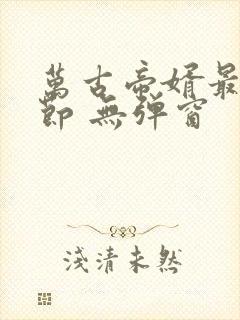 萬古帝婿最
節 無彈窗
淺清未然